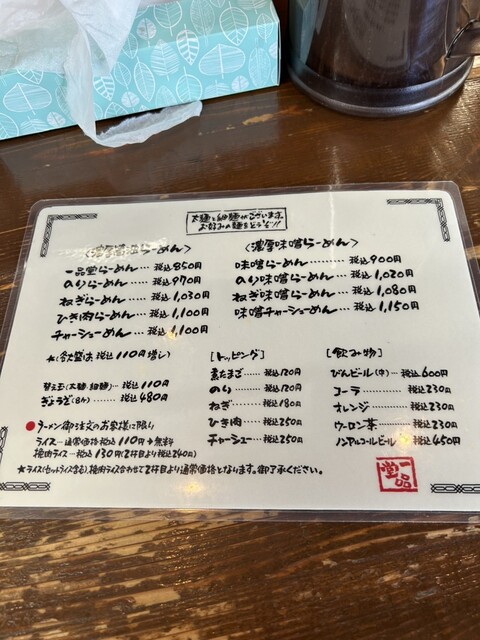 太麺と細麺がございます。
お好みの麺をどうぞ!!
〈濃厚醤油らーめん〉
一品堂らーめん… 税込850円
のりらーめん…… 税込970円
ねぎらーめん…… 税込1,030円
ひき肉らーめん… 税込1,100円
チャーシューめん… 税込1,100円
〈濃厚味噌らーめん〉
味噌らーめん…… 税込900円
のり味噌らーめん… 税込1,020円
ねぎ味噌らーめん… 税込1,080円
味噌チャーシューめん… 税込1,150円
★(各大盛は 税込110円増し)
替え玉(太麺・細麺)… 税込110円
ぎょうざ(8ヶ)…… 税込480円
●ラーメン御注文のお客様に限り
ライス…通常価格 税込110円→無料
挽肉ライス…税込130円(2杯目より税込240円)
★ライス(セットライス含む)、挽肉ライス合わせて2杯目より通常価格となります。御了承ください。
[トッピング]
煮たまご…… 税込120円
のり………… 税込120円
ねぎ………… 税込180円
ひき肉……… 税込250円
チャーシュー… 税込250円
[飲み物]
びんビール(中)… 税込600円
コーラ………… 税込230円
オレンジ……… 税込230円
ウーロン茶…… 税込230円
ノンアルコールビール… 税込450円
一品堂